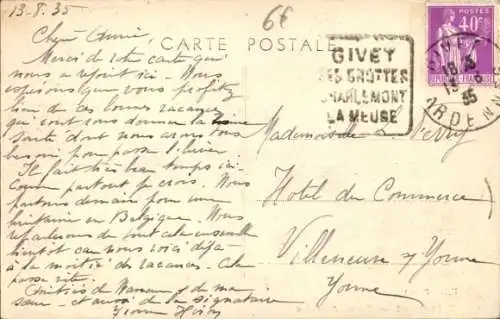 13.8.35
6€
CARTE POSTALE
GIVET
SES GROTTES
CHARLEMONT
LA MEUSE
POSTES
40c
REPUBLIQUE FRANÇAISE
18
35
ARDENNES
Chère Amie,
Merci de votre carte qui
nous a réjouit ici. Nous
espérons que vous profitez
bien de ces bonnes vacances
qui vont vous donner la bonne
santé dont nous avons tous
besoin pour passer l'hiver
Il fait très beau temps ici
comme partout je crois. Nous
partons demain pour une
en Belgique. Nous
reparlerons de tout cela ensemble
bientôt car nous voici déjà
à la moitié des vacances. Cela
passe vite.
Amitiés de Maman & de ma
sœur et avoi de la signature
Yvonne
Mademoiselle L.
Hotel du Commerce
Villeneuse s/ Yonne
Yonne